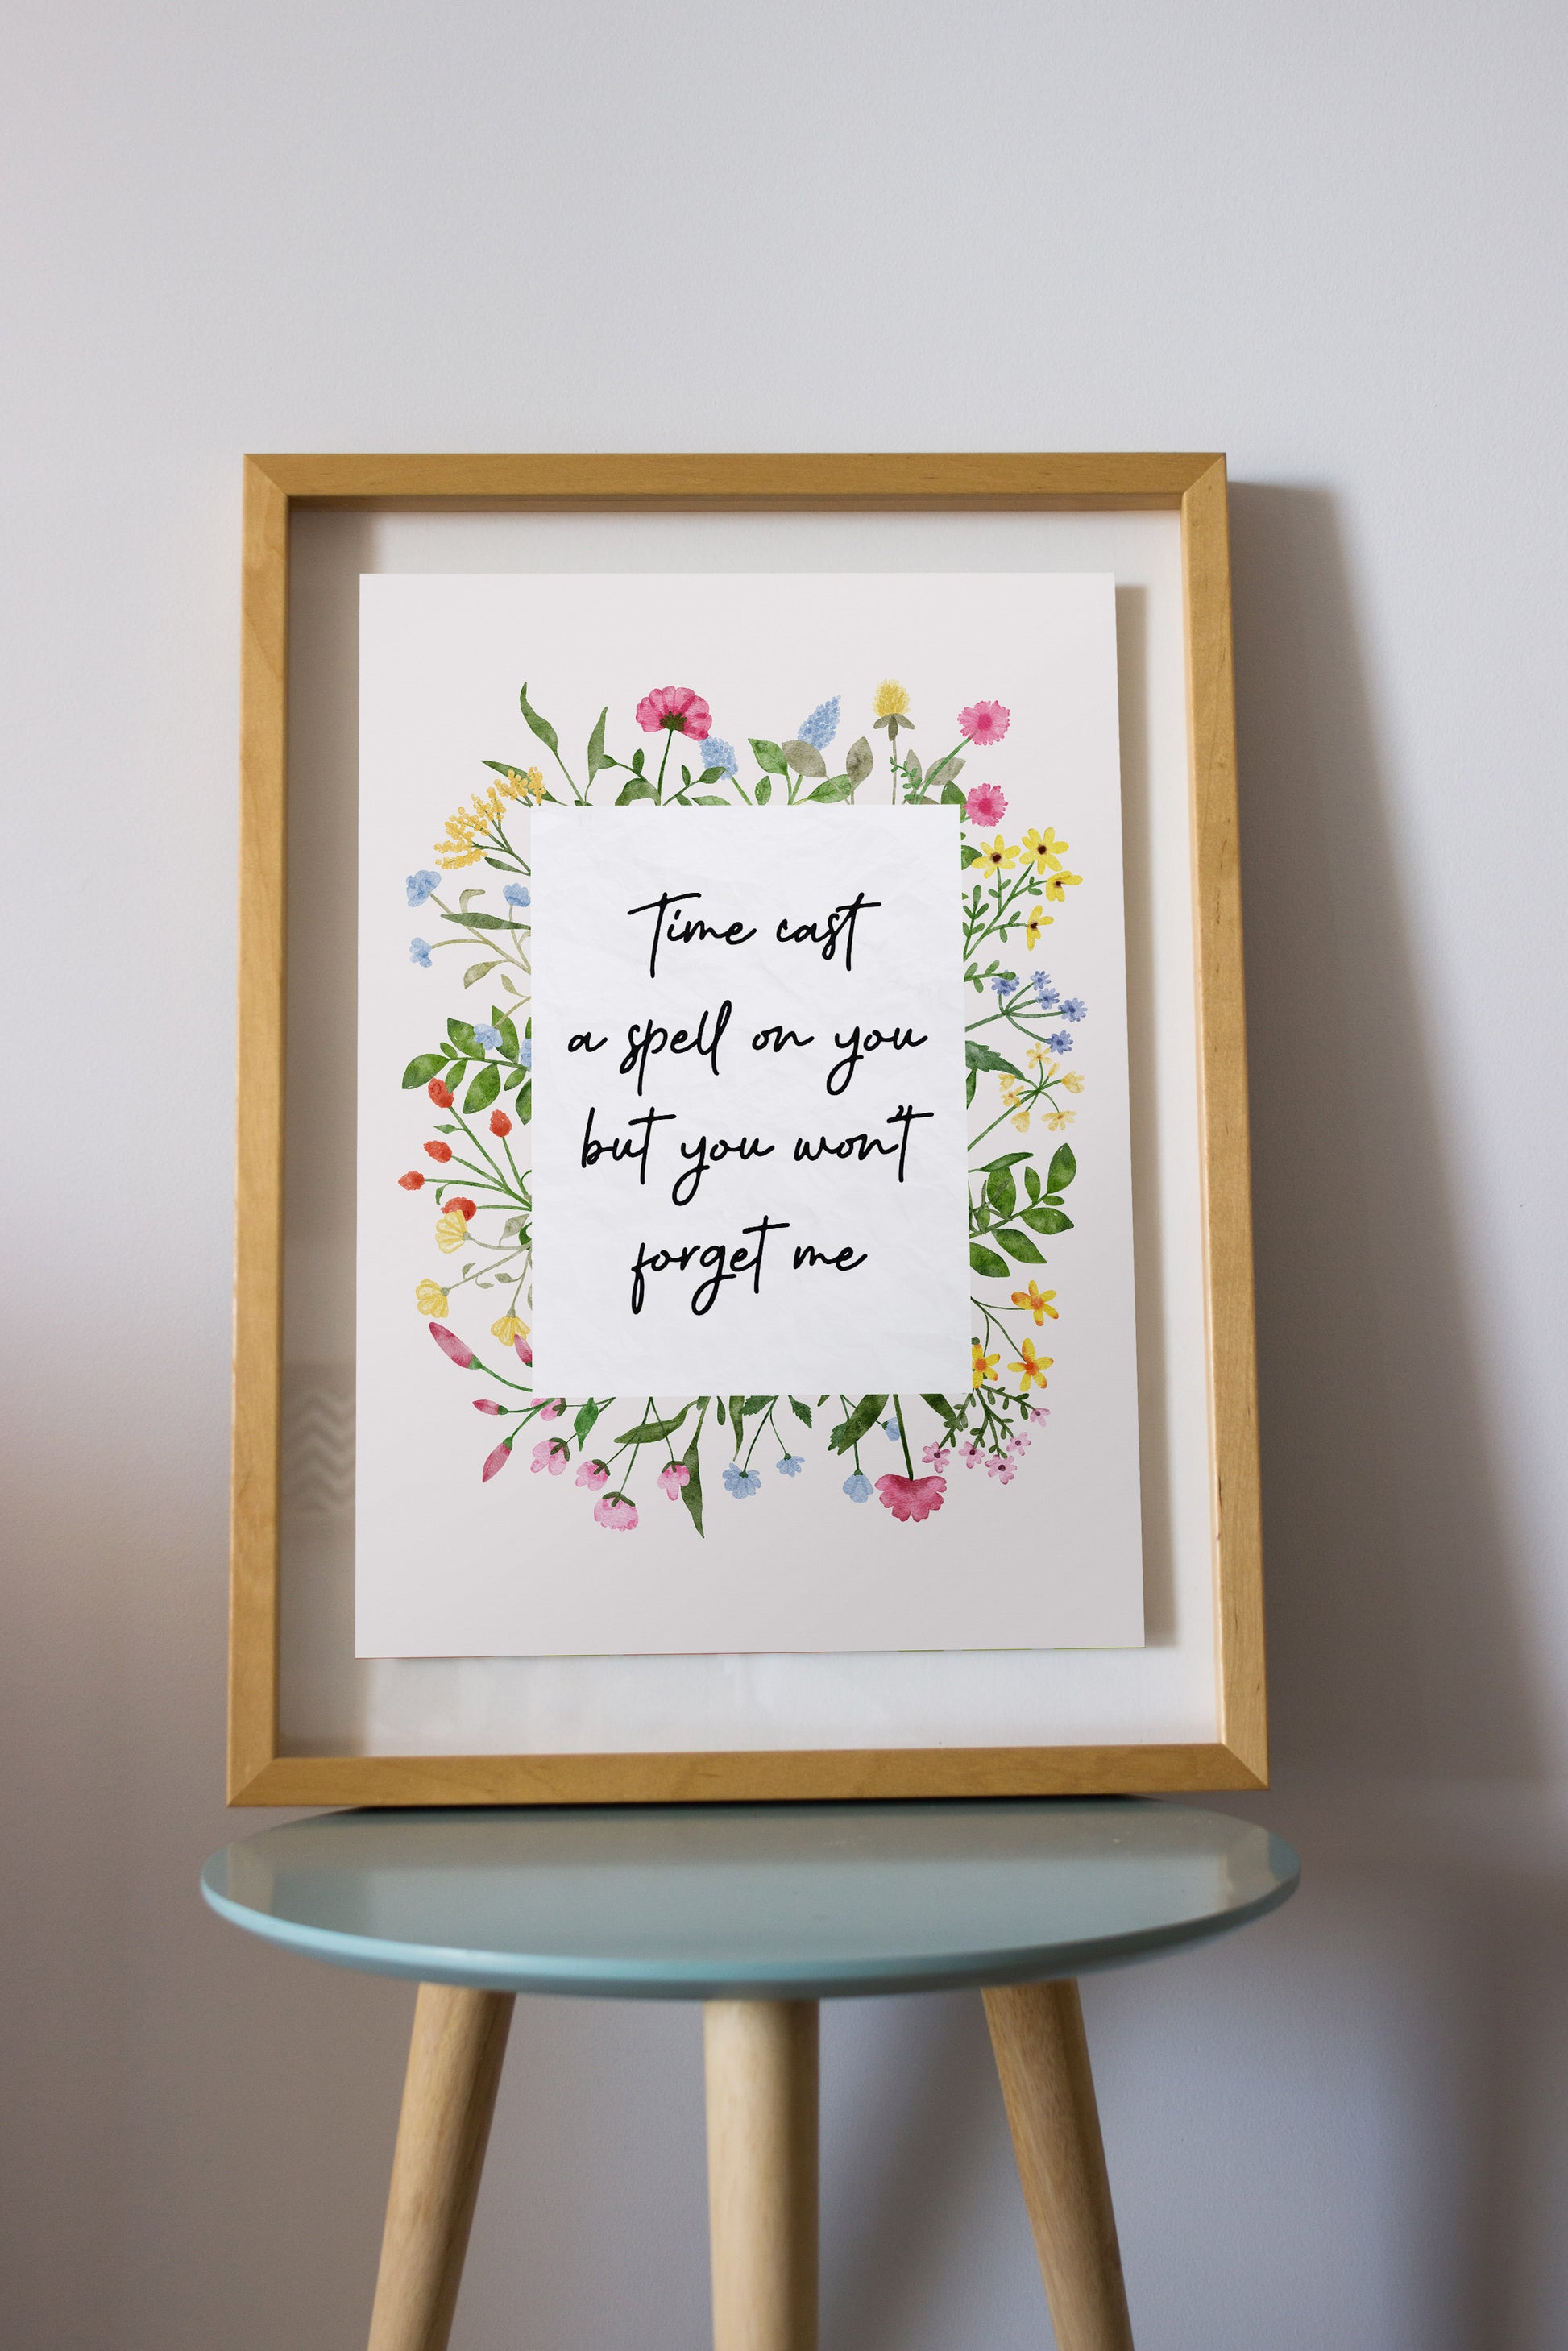 Time cast
a spell on you
but you won't
forget me